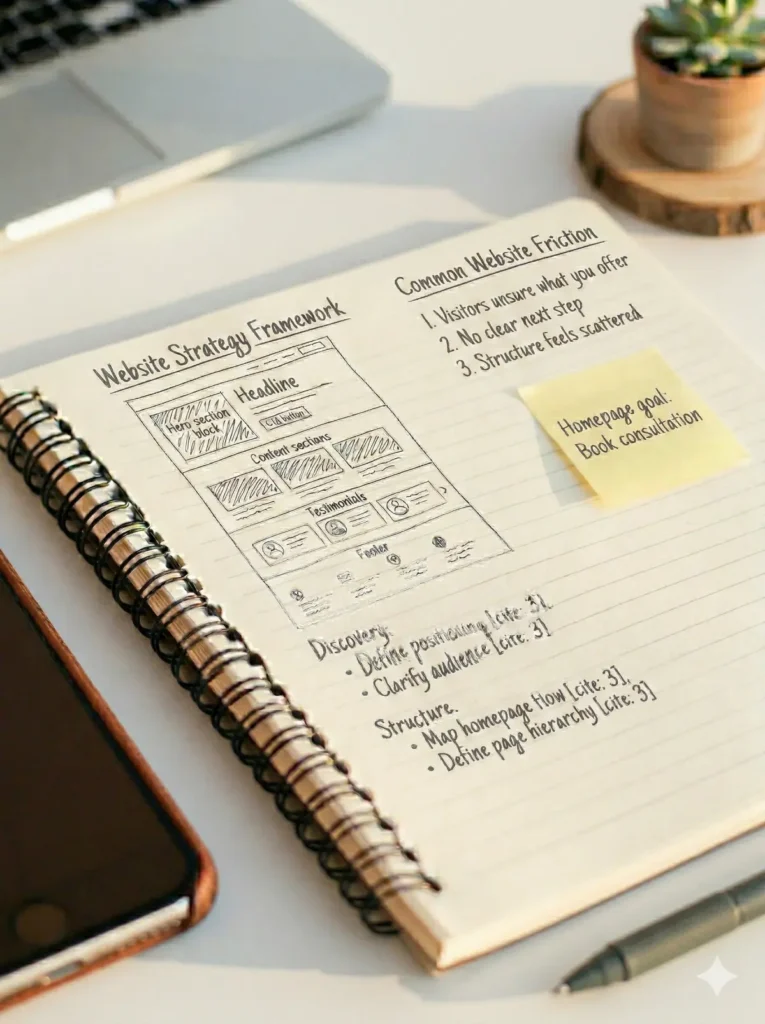 Website Strategy Framework
Headline
Hero section
block
CTA button
Content sections
Testimonials
Footer
Discovery:
• Define positioning [cite: 3],
• Clarify audience [cite: 3]
Structure.
• Map homepage flow [cite: 3],
• Define page hierarchy [cite: 3]
Common Website Friction
1. Visitors unsure what you offer
2. No clear next step
3. Structure feels scattered
Homepage goal:
Book consultation